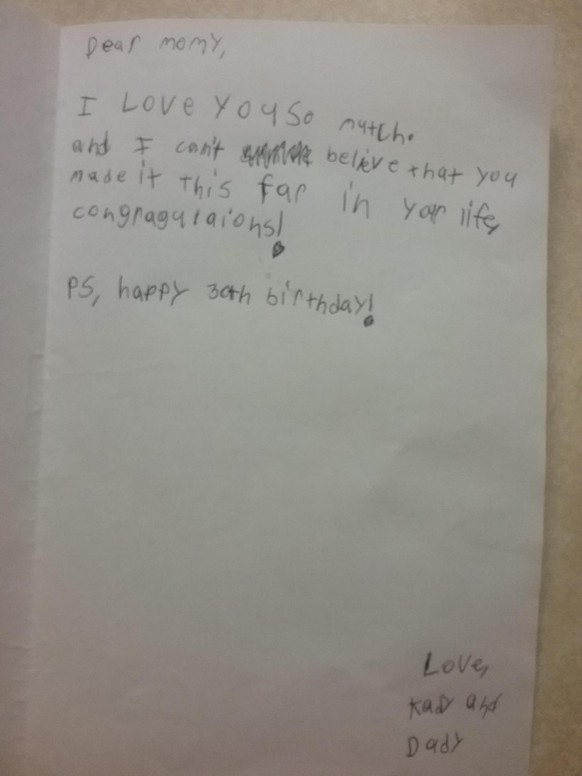 Dear momy,
I Love You So mutch.
and I can't believe that you
made it this far in your life,
congragulaions!
PS, happy 30th birthday!
Love,
Kady and
Dady